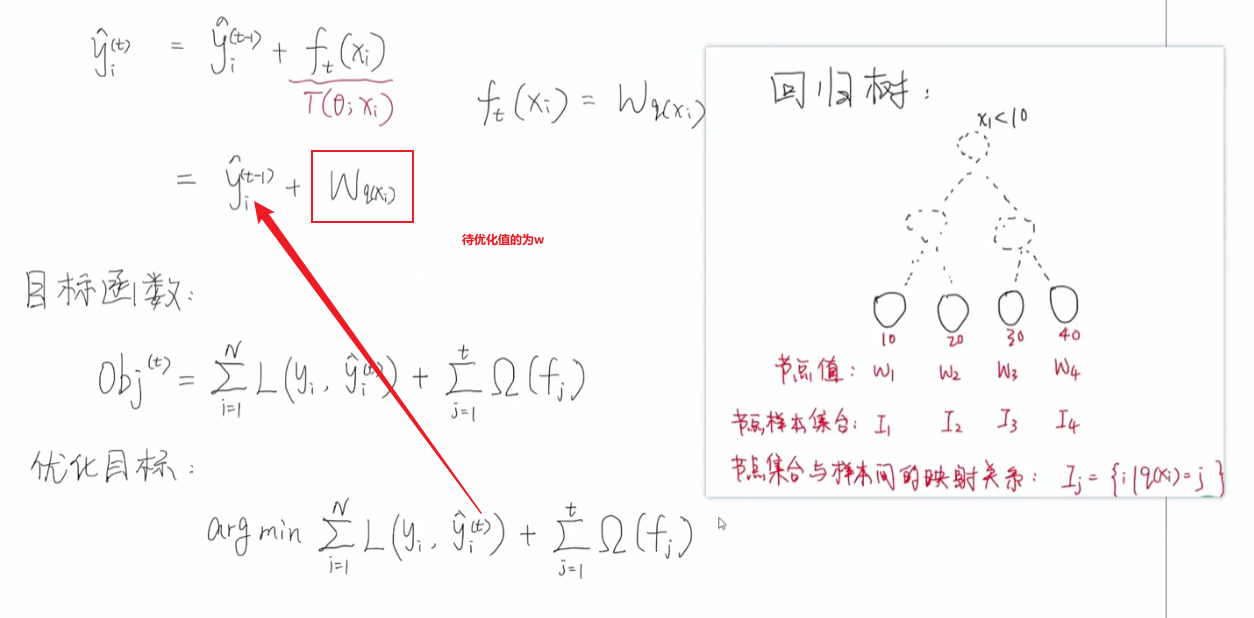 ŷᵢ⁽ᵗ⁾ = ŷᵢ⁽ᵗ⁻¹⁾ + fₜ(xᵢ)
T(θ; xᵢ)
fₜ(xᵢ) = W_q(xᵢ)
= ŷᵢ⁽ᵗ⁻¹⁾ + W_q(xᵢ)
待优化值的为w
目标函数:
Obj⁽ᵗ⁾ = ∑_{i=1}^{N} L(yᵢ, ŷᵢ⁽ᵗ⁾) + ∑_{j=1}^{t} Ω(fⱼ)
优化目标:
arg min ∑_{i=1}^{N} L(yᵢ, ŷᵢ⁽ᵗ⁾) + ∑_{j=1}^{t} Ω(fⱼ)
回归树:
x₁<10
10 20 30 40
节点值: W₁ W₂ W₃ W₄
节点样本集合: I₁ I₂ I₃ I₄
节点集合与样本间的映射关系: Iⱼ = {i|q(xᵢ)=j}